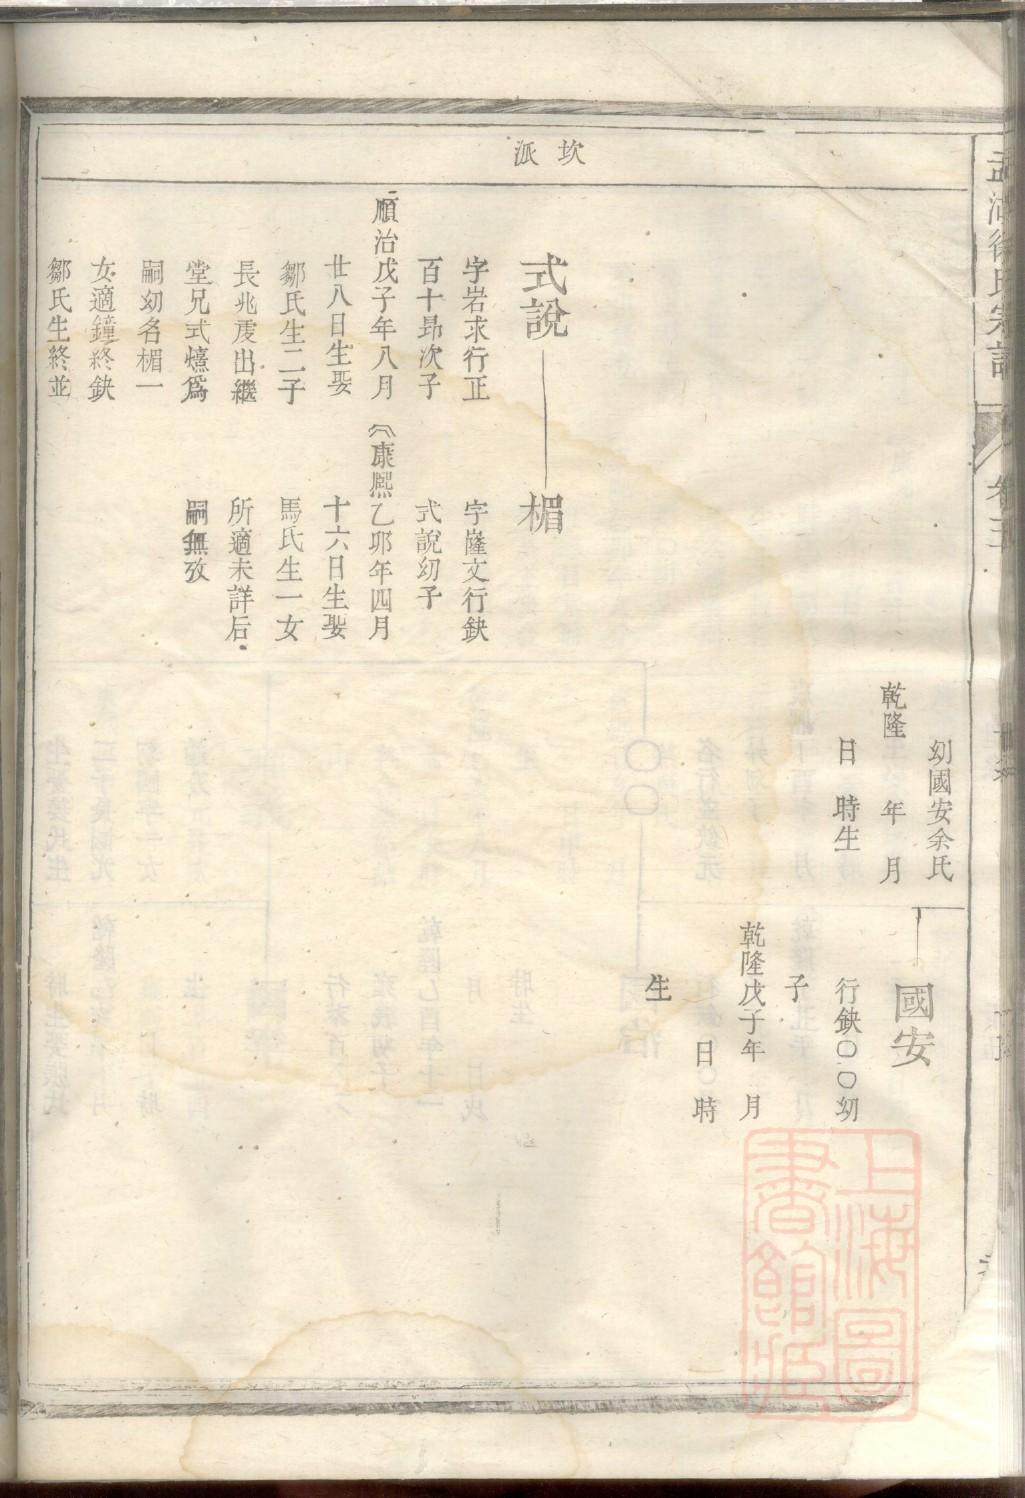 坎派
幼國安余氏
乾隆 年 月
日 時生
國安
行鈌〇〇幼
子
乾隆戊子年 月
日 時
生
式說
字岩求行正
百十昻次子
順治戊子年八月
廿八日生娶
鄒氏生二子
長兆虔出繼
堂兄式熺爲
嗣幼名楣一
女適鐘終鈌
鄒氏生終並
楣
字嶐文行鈌
式說幼子
康熙乙卯年四月
十六日生娶
馬氏生一女
所適未詳后
嗣無攷
上海圖
書館藏